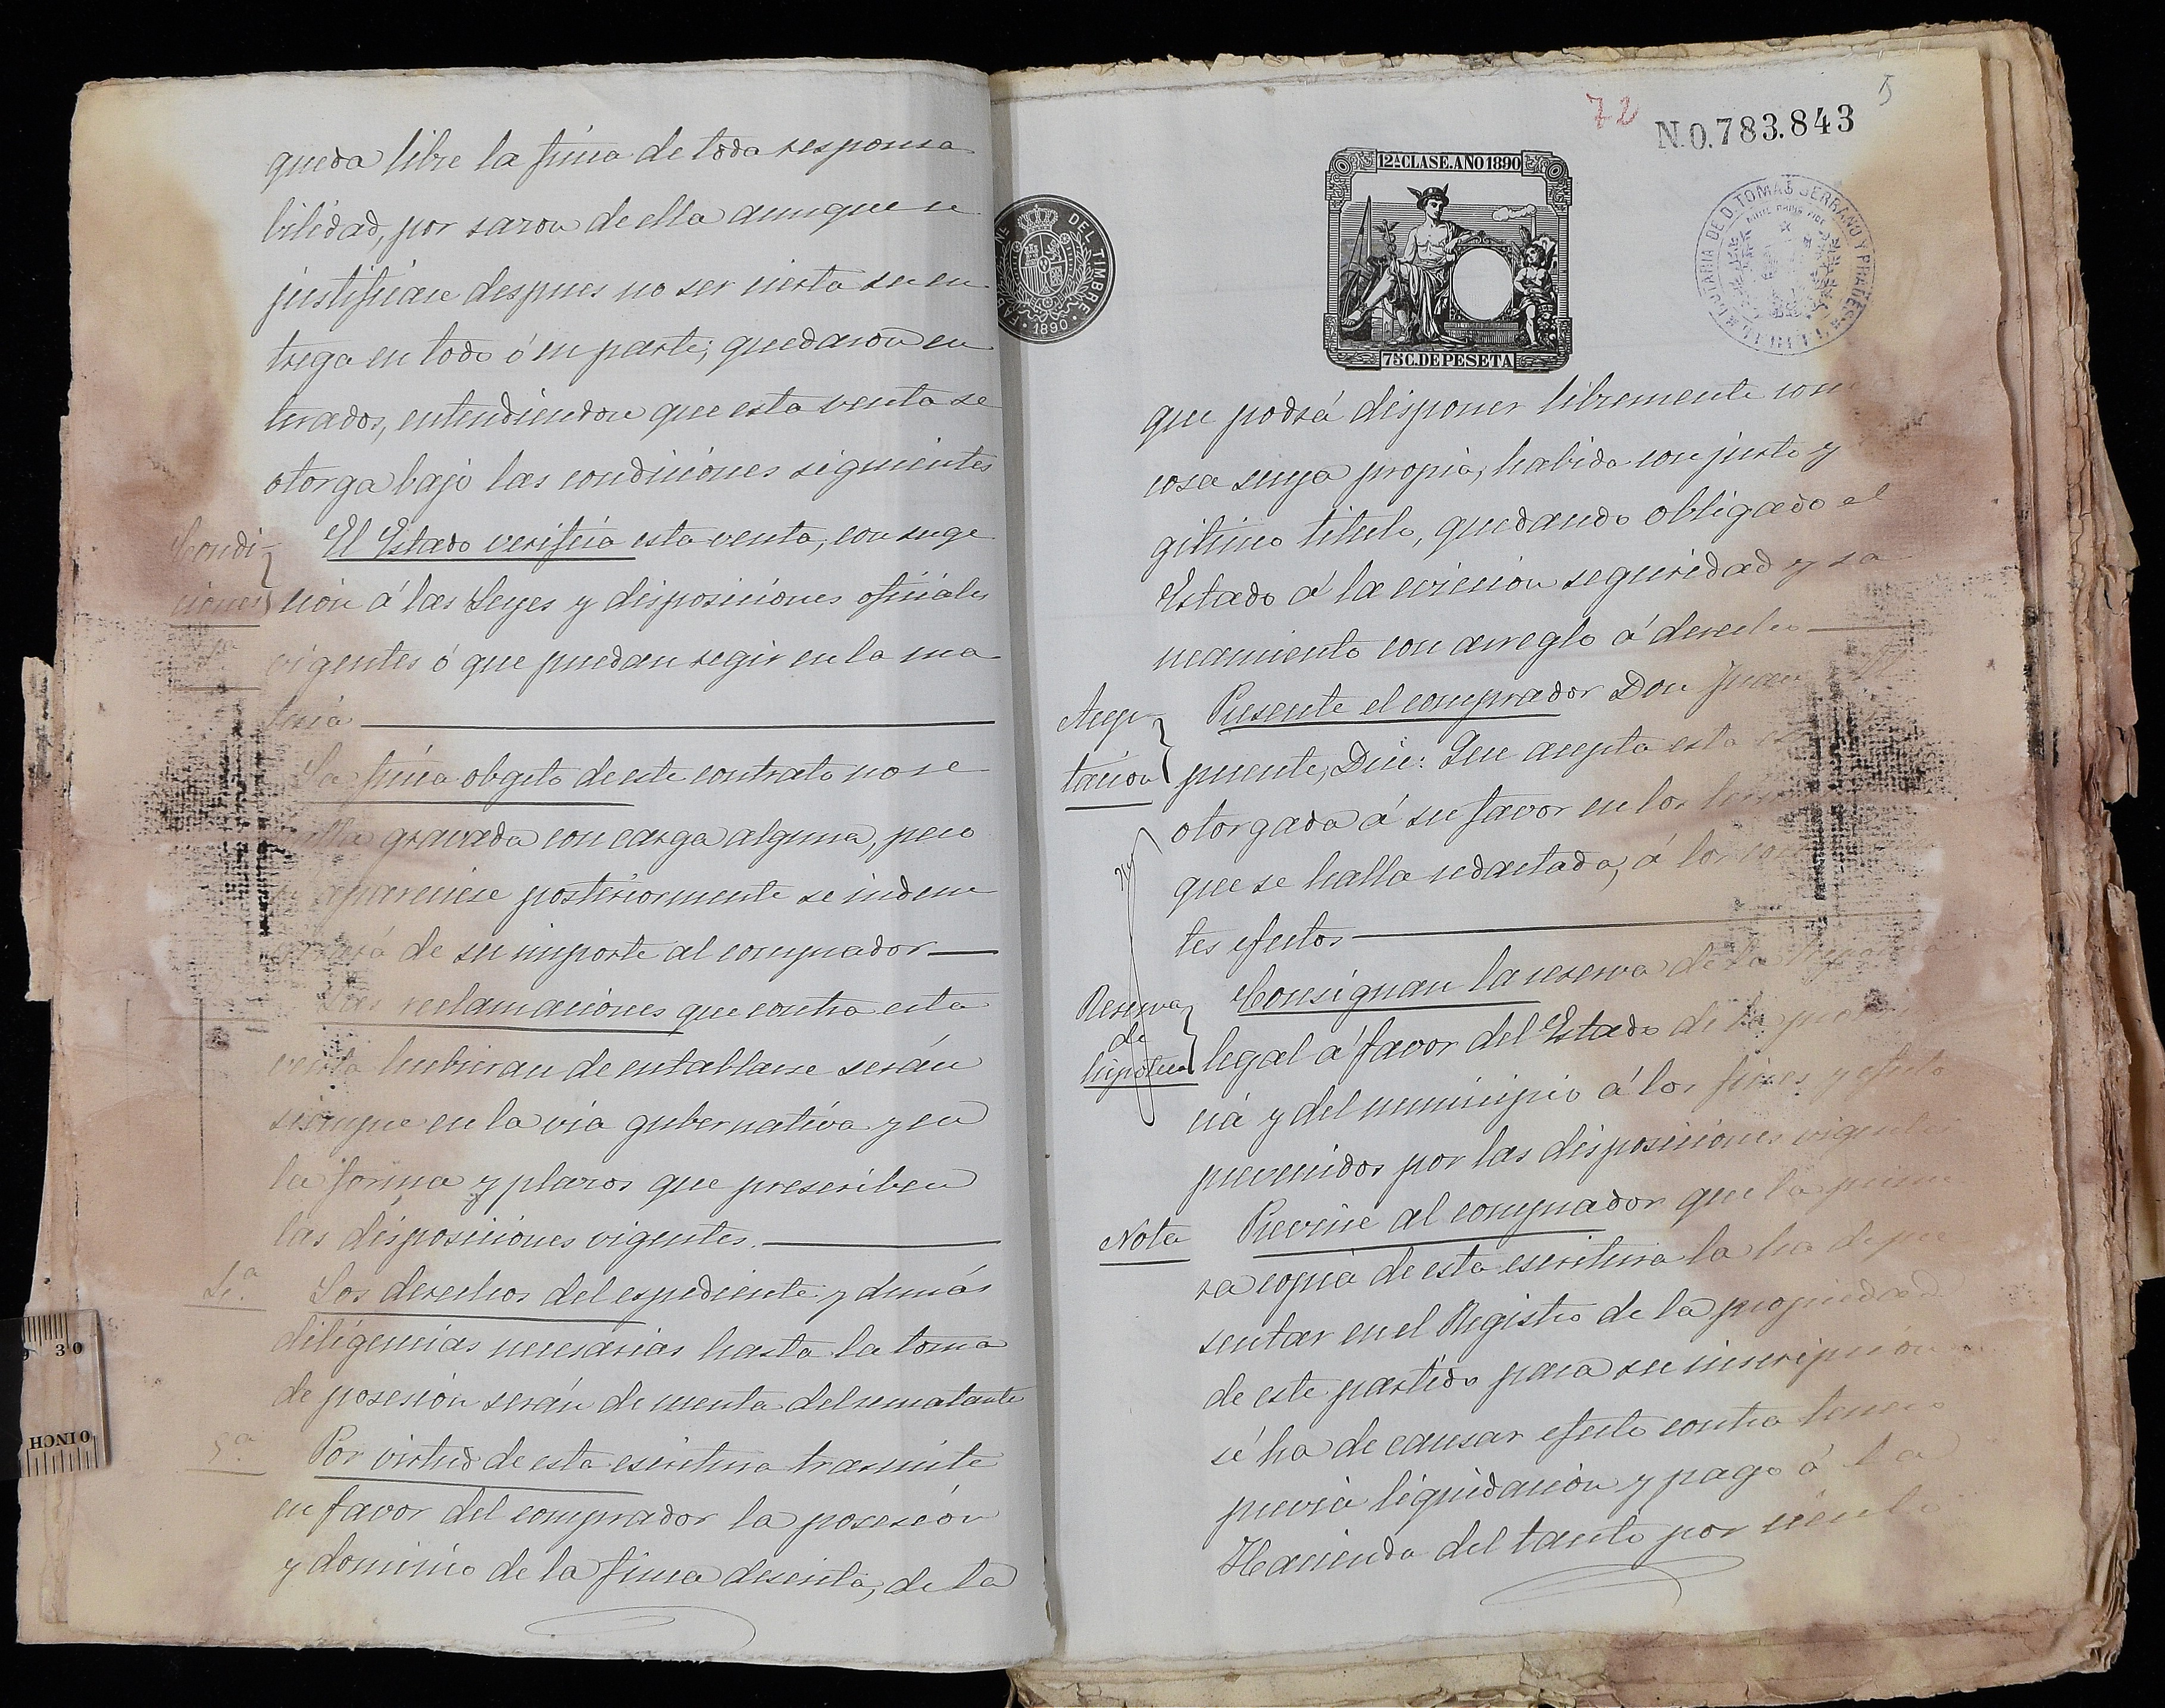 queda libre la finca de toda responsa
bilidad, por razon de ella aunque se
justificare despues no ser cierta su en
trega en todo ó en parte; quedaron en
terados, entendiendose que esta venta se
otorga bajo las condiciones siguientes
Condi-
ciones
1ª
El Estado verifica esta venta, con suge
cion á las Leyes y disposiciones oficiales
vigentes ó que puedan regir en la ma
teria
La finca obgeto de este contrato no se
halla gravada con carga alguna, pero
si apareciese posteriormente se indem
nizará de su importe al comprador
Las reclamaciones que contra esta
venta hubieran de entablarse serán
siempre en la via gubernativa y en
la forma y plazos que prescriben
las disposiciones vigentes.
4.ª
Los derechos del espediente y demás
diligencias necesarias hasta la toma
de posesión serán de cuenta del rematante
5.ª
Por virtud de esta escritura trasmite
en favor del comprador la posesión
y dominio de la finca descrita, de la
72
5
N.0.783.843
12ª CLASE. AÑO 1890
75 C. DE PESETA
DEL TIMBRE
1890
NOTARIA DE D. TOMAS SERRANO Y PRADES
NIHIL PRIUS FIDE
que podrá disponer libremente com
cosa suya propia, habida con justo y
gitimo titulo, quedando obligado el
Estado á la eviccion seguridad y sa
neamiento con arreglo á derecho
Acep-
tacion
Presente el comprador Don Juan
puente, Dice: Que acepta esta es
otorgada á su favor en los
que se halla redactada, á los
tes efectos
Reserva
de
hipoteca
Consignan la reserva de la hipoteca
legal á favor del Estado de la provin
cia y del municipio á los fines y efecto
prevenidos por las disposiciones vigentes
Nota
Previne al comprador que la prime
ra copia de esta escritura la ha de pre
sentar en el Registro de la propiedad
de este partido para su inscripcion
si ha de causar efecto contra tercero
previa liquidacion y pago á la
Hacienda del tanto por ciento